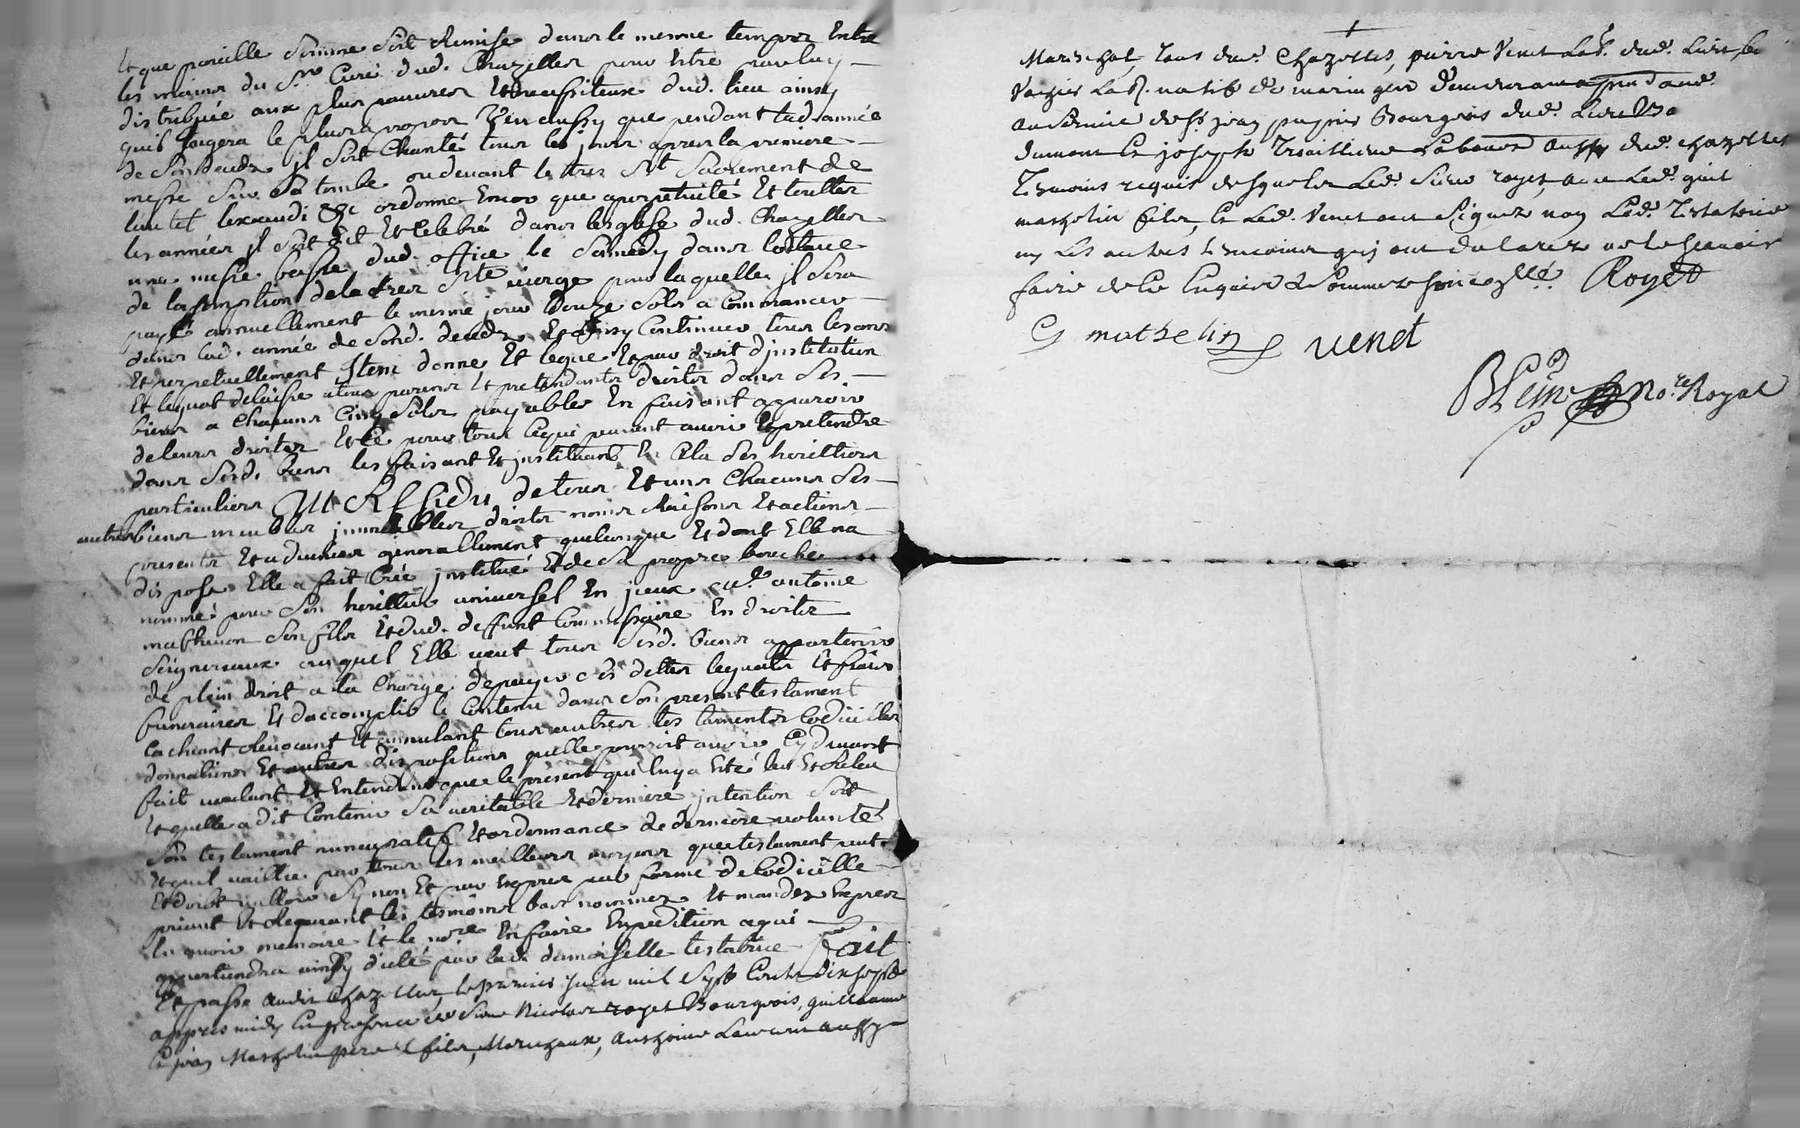 Et que pareille somme soit Remise dans le mesme temps Entre
les mains du Sr. Curé dud. Chazelles pour Estre par luy
distribuée aux plus pauvres Et necessiteux dud. lieu ainsy
quil jugera le plus a propos Veu aussy que pendant lad. année
de son deuds jl soit Chanté tous les jours apres la premiere
messe Sur sa tombe ou devant le tres St. Sacrement de
lautel lexaudi &c ordonne Encor que a perpetuité Et touttes
les années jl soit dit Et Celebré dans lesglise dud. Chazelles
une messe basse dud. office le Samedy dans loctave
de lassomption de la tres Ste. vierge pour laquelle jl sera
payé annuellement le mesme jour Douze Sols a Commancer
dans lad. année de Sond. deuds Et ainsy Continuer tous les ans
Et perpetuellement Item donne Et legue Et par droit djnstitution
Et legat delaisse a tous parens Et pretendants droits dans Ses
biens a Chacuns Cinq Sols payables En faisant apparoir
de leurs droits Et Ce pour tout Ce qui peuvent avoir Et pretendre
dans Sesd. biens les faisant Et jnstituant En Cela Ses heritiers
particuliers Au Residu de tous Et uns Chacuns Ses
autres biens meubles jmmeubles droits noms Raisons Et actions
presents Et advenir generallement quelconque Et dont Elle na
disposé Elle a fait Créé jnstitué Et de Sa propre bouche
nommé pour Son heritier universel En jceux antoine
mathevon Son fils Et dud. deffunt Commissaire En droits
Seigneuriaux auquel Elle veut tous Sesd. biens appartenir
de plein droit a la Charge de payer Ses dettes legats Et frais
funeraires Et daccomplir le Contenu dans Son present testament
Cachant Revocant Et annulant tous autres testaments Codicilles
donnations Et autres dispositions quelle pourroit avoir Cydevant
fait voulant Et Entendant que le present qui luy a Esté lu Et Relu
Et quelle a dit Contenir Sa veritable Et derniere jntention Soit
Son testament nuncupatif Et ordonnance de derniere volunté
Et quil vaille par tous les meilleurs moyens que testament peut
Et doit valloir Synon Et par Expres par forme de Codicille
priant Et Requerant les tesmoins bas nommez Et mandez Expres
En avoir memoire Et le nore. En faire Expedition a qui
appartiendra ainsy dicté par lad. damoiselle testatrice Fait
Et passé audit Chazelles le premier Juin mil Sept Cents dixsept
apres midy En presence de Sieur Nicolas royet Bourgeois, guillaume
Et jean Mathelin pere Et fils, Marechaux, Anthoine aussy
Mareschal, Tous dud. Chazelles, pierre Venet dud. Lieu,
natif de maringes
au Service de Sr. jean Bourgeois dud. Lieu
Et joseph aussy dud. chazelles
Tesmoins requis desquels Led. Sieur royet, avec Led. guil
mathelin fils, Et Led. Venet ont Signez non Led. Testatrice
ny Les autres tesmoins quj ont declarez ne le Sçavoir
faire de Ce Enquis Et Sommez
Royet
G mathelin venet
No.re Royal